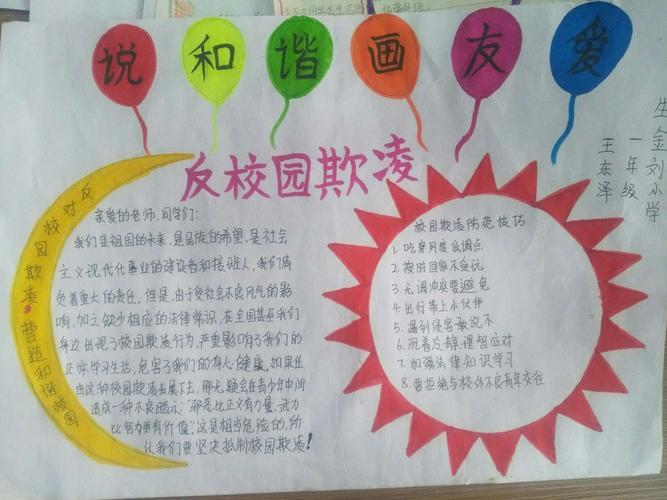 说和谐画友爱
生金刘小学
一年级
王东泽
反校园欺凌
反对校园欺凌,营造和谐校园
亲爱的老师、同学们:
我们是祖国的未来,是民族的希望,是社会
主义现代化事业的建设者和接班人,我们肩
负着重大的责任,但是,由于受社会不良风气的影
响,加之缺少相应的法律常识,在全国甚至我们
身边出现了校园欺凌行为,严重影响了我们的
正常学习生活,危害了我们的身心健康,如果任
由这种校园欺凌发展下去,那无疑会在青少年中间
造成一种不良暗示:“邪恶比正义有力量,武力
比智力更有价值”。这是相当危险的,所
以我们要坚决抵制校园欺凌!
校园欺凌防范技巧
1.吃穿用度低调点
2.按时回家不逗玩
3.无谓冲突要避免
4.出行带上小伙伴
5.遇到侵害敢说不
6.沉着忍静理智应对
7.加强法律知识学习
8.要拒绝与校外不良青年交往